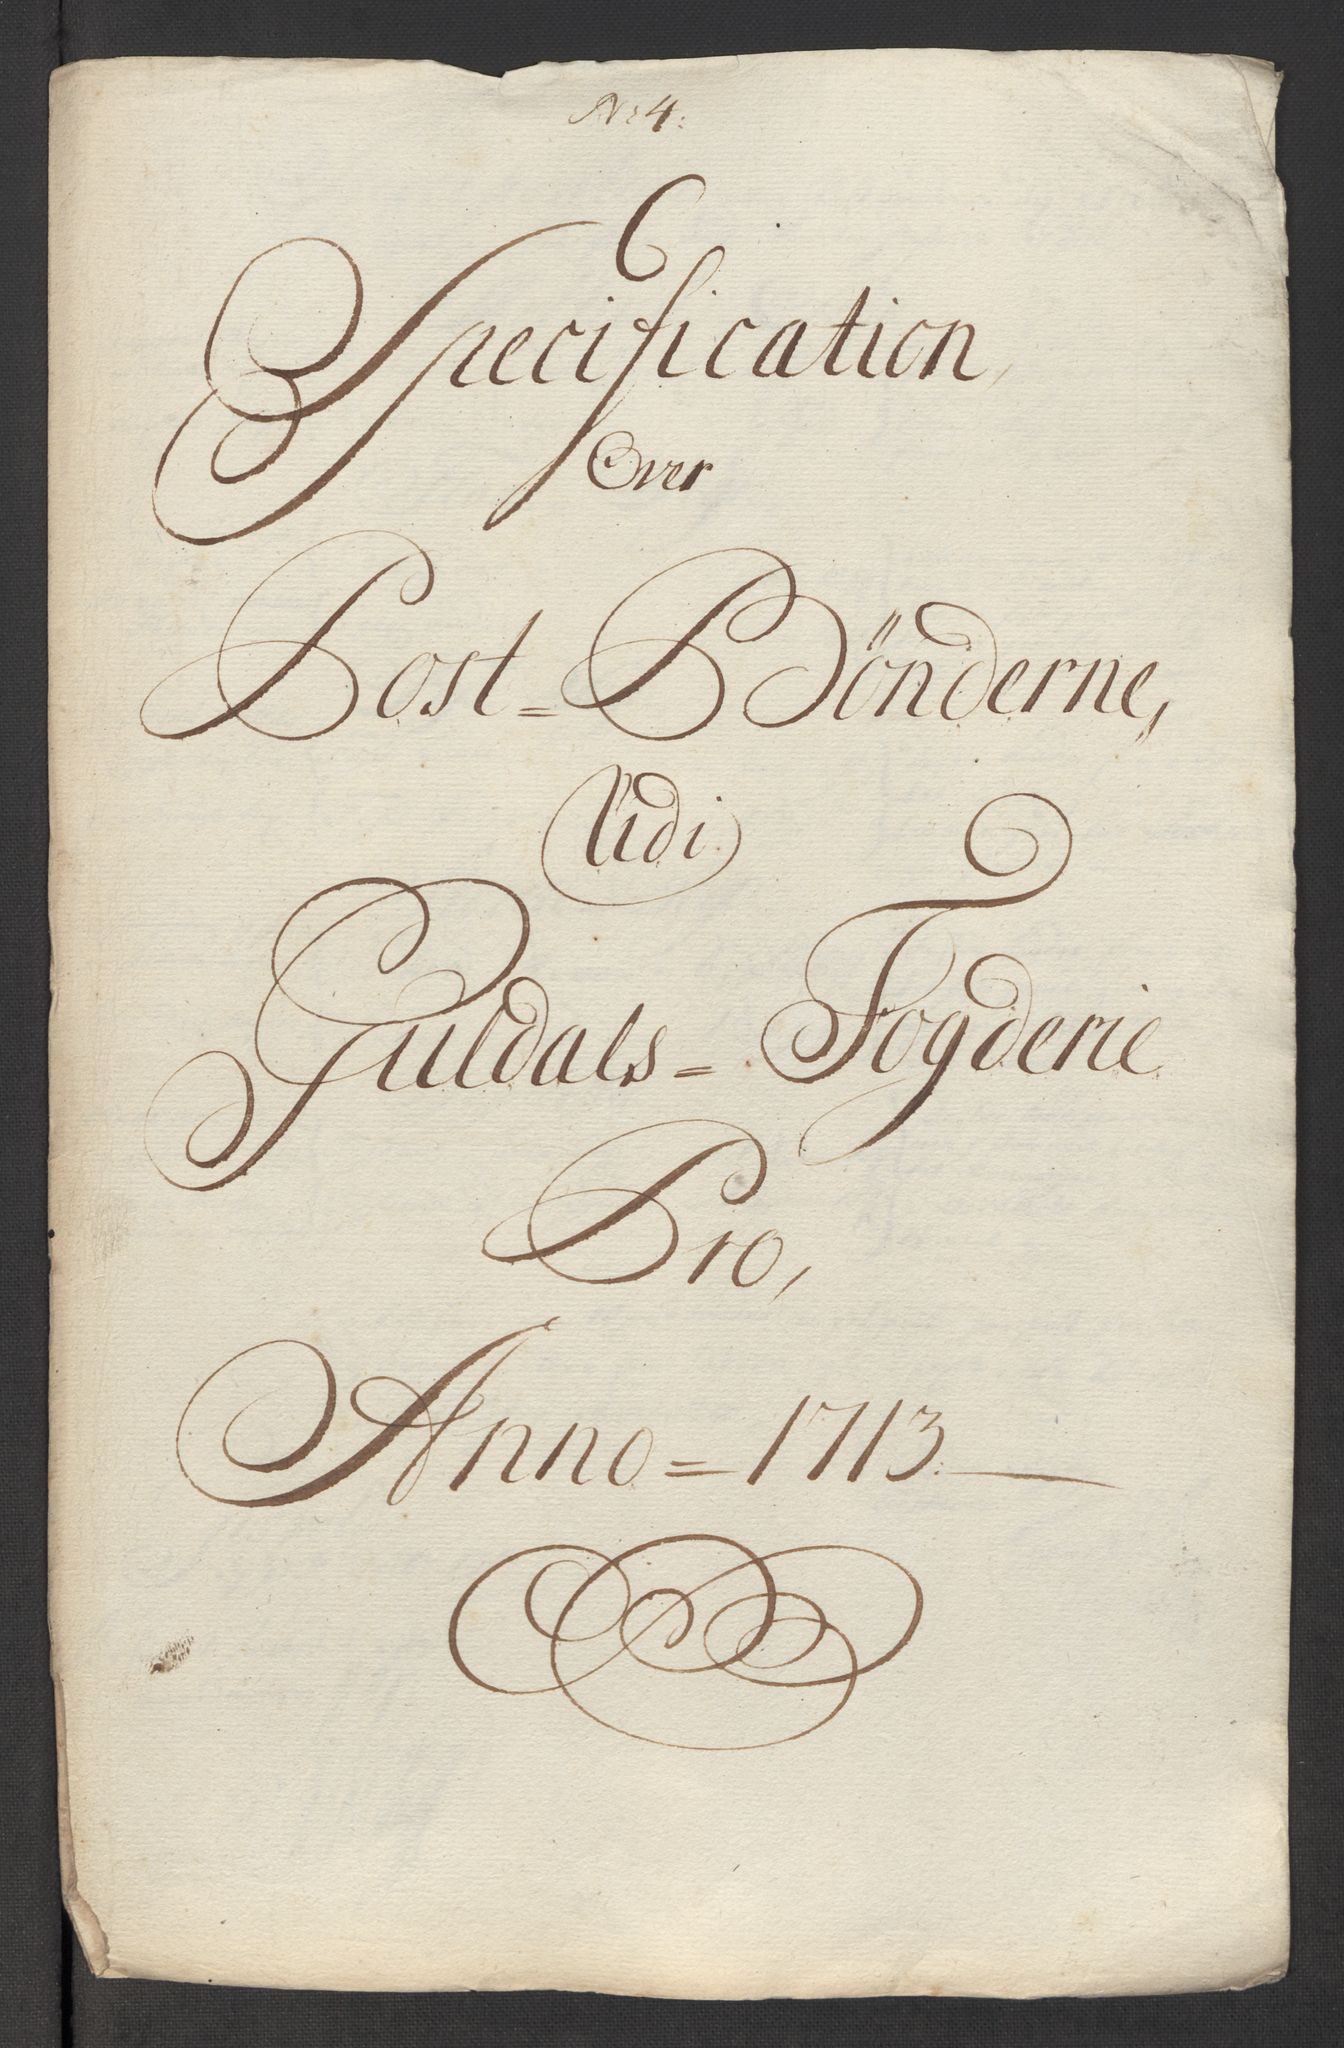 No 4:
Specification,
Over
Post=Bönderne,
Udi
Guldals= Fogderie
Pro,
Anno=1713.